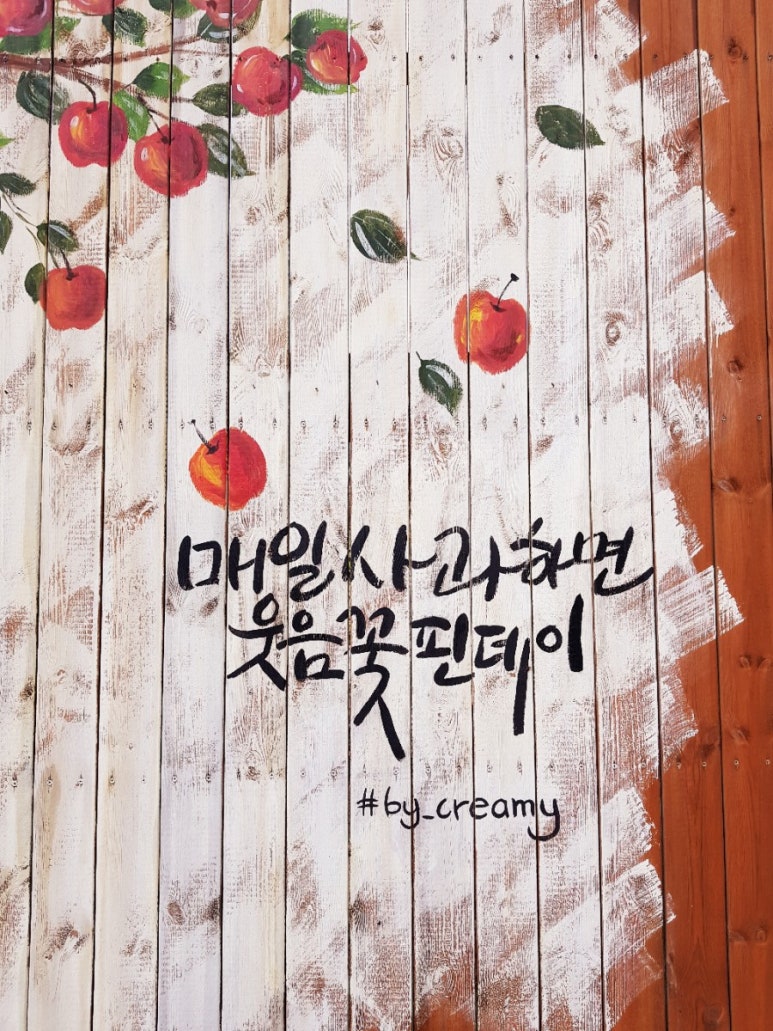 매일 사과하면
웃음꽃 핀데이
#by_creamy